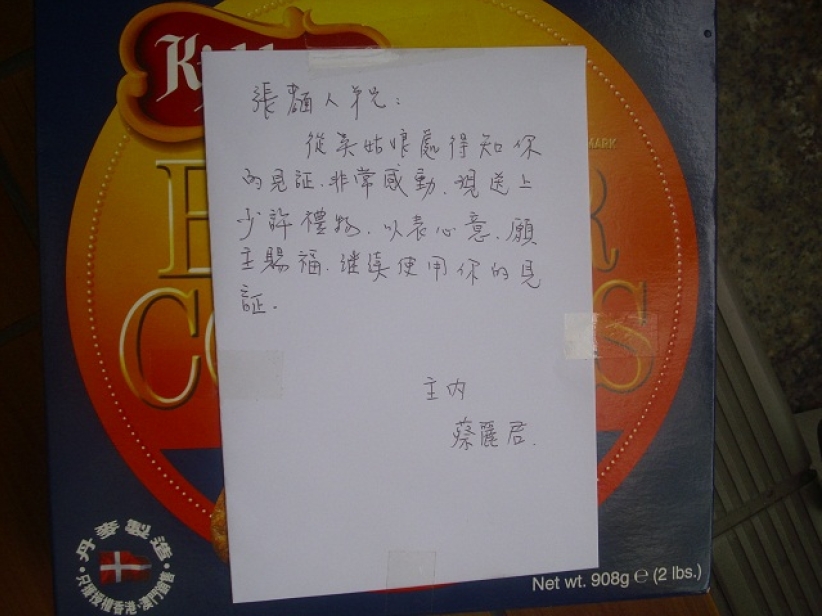 張麵人弟兄：
從吳姑娘處得知你
的見証、非常感動、現送上
少許禮物、以表心意、願
主賜福、继续使用你的見
証.
主内
蔡麗君.
MARK
丹麥製造
只獲授權香港·澳門銷售
Net wt. 908g e (2 lbs.)